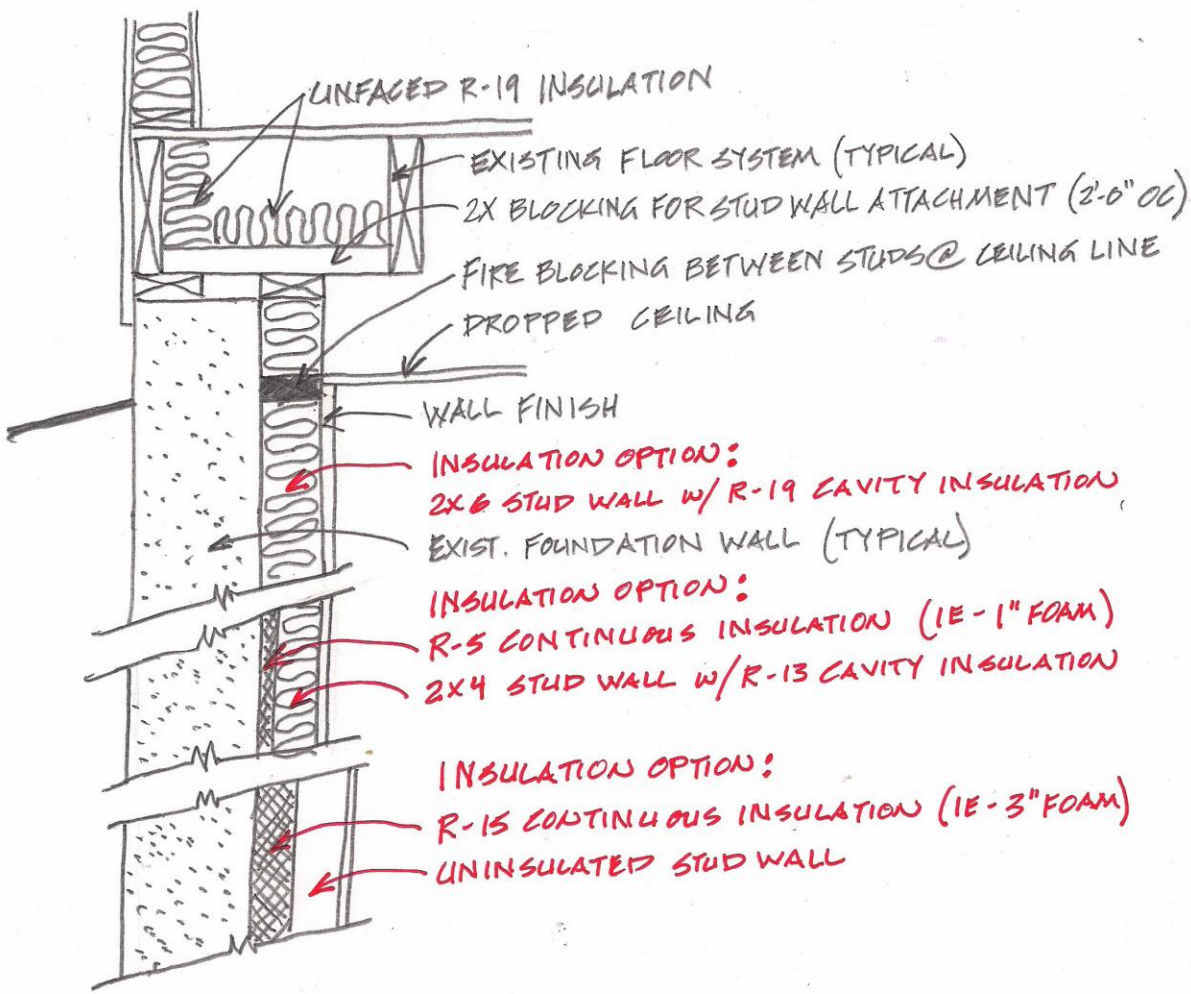 UNFACED R-19 INSULATION
EXISTING FLOOR SYSTEM (TYPICAL)
2X BLOCKING FOR STUD WALL ATTACHMENT (2'-0" OC)
FIRE BLOCKING BETWEEN STUDS @ CEILING LINE
DROPPED CEILING
WALL FINISH
INSULATION OPTION:
2X6 STUD WALL W/ R-19 CAVITY INSULATION
EXIST. FOUNDATION WALL (TYPICAL)
INSULATION OPTION:
R-5 CONTINUOUS INSULATION (IE-1" FOAM)
2X4 STUD WALL W/R-13 CAVITY INSULATION
INSULATION OPTION:
R-15 CONTINUOUS INSULATION (IE-3" FOAM)
UNINSULATED STUD WALL